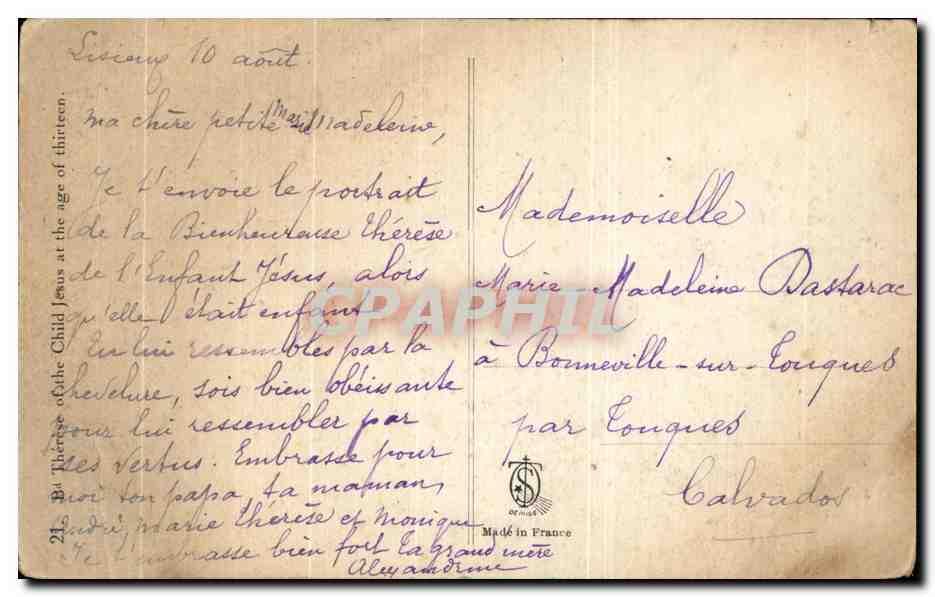 Lisieux 10 août.
ma chère petite Marie Madeleine,
Je t'envoie le portrait
de la Bienheureuse Thérèse
de l'Enfant Jésus, alors
qu'elle était enfant
Tu lui ressembles par la
chevelure, sois bien obéissante
pour lui ressembler par
ses vertus. Embrasse pour
moi ton papa, ta maman,
André, marie Thérèse et Monique
Je t'embrasse bien fort ta grand mère
Alexandrine
21. Bd Thérèse of the Child Jesus at the age of thirteen.
Mademoiselle
Marie-Madeleine Dastarac
à Bonneville-sur-Touques
par Touques
Calvados
Made in France
CPAPHIL